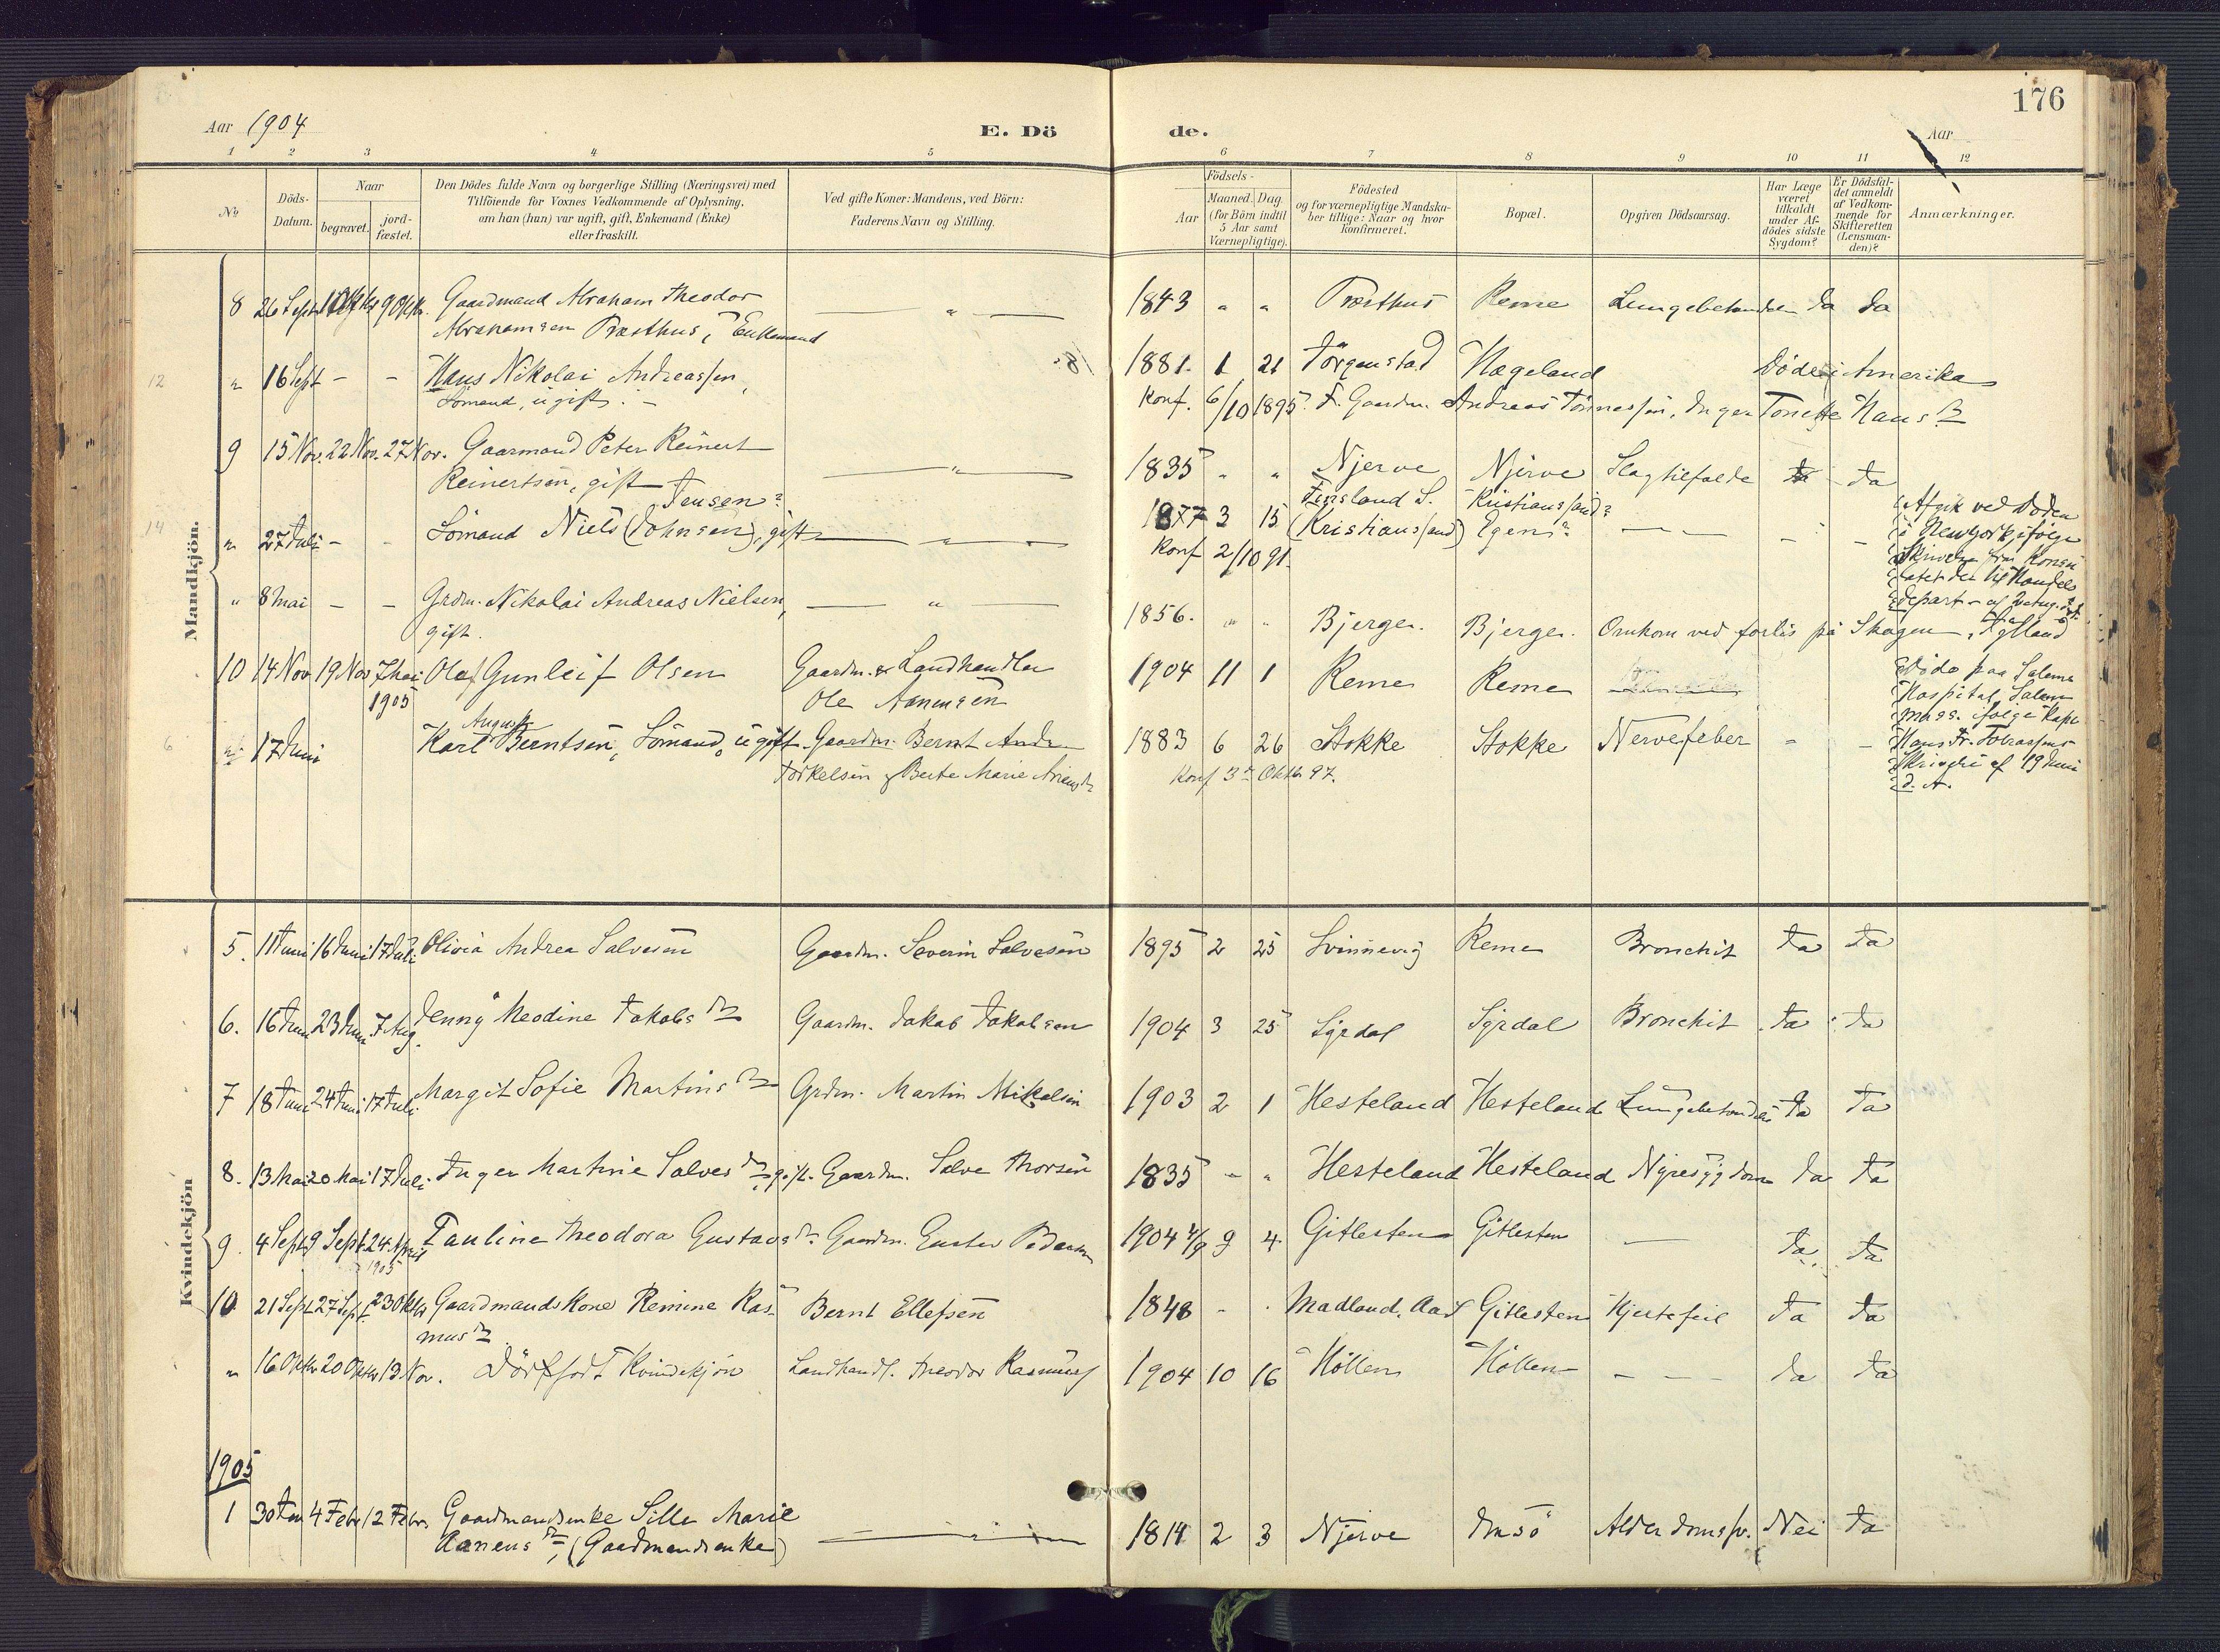 176
Aar 1904
E. Dö
de.
Aar
1 2 3 4 5 6 7 8 9 10 11 12
№
Döds-
Datum.
Naar
begravet.
jord-
fæstet.
Den Dödes fulde Navn og borgerlige Stilling (Næringsvei) med
Tilföiende for Voxnes Vedkommende af Oplysning,
om han (hun) var ugift, gift, Enkemand (Enke)
eller fraskilt.
Ved gifte Koner: Mandens, ved Börn:
Faderens Navn og Stilling.
Födsels-
Aar
Maaned. Dag.
(for Börn indtil
5 Aar samt
Værnepligtige).
Födested
og for værnepligtige Mandska-
ber tillige: Naar og hvor
konfirmeret.
Bopæl.
Opgiven Dödsaarsag.
Har Læge
været
tilkaldt
under Af-
dödes sidste
Sygdom?
Er Dödsfal-
det anmeldt
af Vedkom-
mende for
Skifteretten
(Lensman-
den)?
Anmærkninger.
Mandkjön.
8 26 Sept 9 Oktr. Gaardmand Abraham Theodor
Abrahamsen Præsthus, Enkemand
" 1843 " " Præsthus Reme Lungebetændelse Ja Ja
12 " 16 Sept - - Hans Nikolai Andreassen,
Sömand, ugift. -
1881. 1 21 Jörgenstad Hægeland Döde i Amerika
Konf. 6/10 1895. F. Gaardm. Andreas Tönnessen, Inger Tonette Hansdr
9 15 Nov. 22 Nov. 27 Nov. Gaarmand Peter Reinert
Reinertsen, gift
" 1835 " " Njerve Njerve Slagtilfælde Ja Ja
14 " 27 Juli - - Jensen?
Sömand Niels (Johnsen), gift
1877 3 15 Finsland S. (Kristianssand) Kristianssand?
Egens? - - -
Konf 2/10 91.
Afgik ved Döden
i Newyork, ifölge
Skrivelse fra Konsu
latet der til Handels
depart-
" 8 Mai - - Grdm. Nikolai Andreas Nielsen,
gift.
" 1856. " " Bjerge. Bjerge. Omkom ved forlis på Skagen, Jylland
10 14 Nov 19 Nov 7 Mai
1905 Olaf Gunleif Olsen Gaardm. & Landhandler
Ole Aanensen
1904 11 1 Reme Reme
6 17 Juni Karl August Berntsen, Sömand, ugift. Gaardm. Bernt Andr.
Torkelsen & Berte Marie
1883 6 26 Stokke Stokke Nervefeber - -
Konf 3 Oktbr 97.
Döde paa Salems
Hospital, Salem
Mass. fölge Kapt.
Hans Fr. Tobiassens
Skrivelse af 19 Juni
d. A.
Kvindekjön
5. 11 Juni 16 Juni 17 Juli Olivia Andrea Salvesen Gaardm. Severin Salvesen 1895 2 25 Svinnevig Reme Bronchit Ja Ja
6. 16 Juni 23 Juni 7 Aug. Jenny Neodine Jakobsdr Gaardm. Jakob Jakobsen 1904 3 25 Syrdal Syrdal Bronchit Ja Ja
7 18 Juni 24 Juni 17 Juli Margit Sofie Martinsdr Grdm. Martin Mikalsen 1903 2 1 Hesteland Hesteland Lungebetændelse Ja Ja
8. 13 Mai 20 Mai 17 Juli. Inger Martine Salvesdr, gift. Gaardm. Salve Thorsen 1835 - " Hesteland Hesteland Nyresygdom Ja Ja
9. 4 Sept 9 Sept. 24 April
1905 Pauline Theodora Gustavsdr. Gaardm. Gustav Pedersen 1904 4/9 9 4. Gitlesten Gitlesten - Ja Ja
10 21 Sept 27 Sept. 23 Oktr Gaardmandskone Remine Ras-
musdr Bernt Ellefsen 1848 - . Madland, Aas Gitlesten Hjertefeil Ja Ja
" 16 Oktr 20 Oktr 13 Nov. Dödfödt Kvindekjön Landhandl. Theodor Rasmuss 1904 10 16 Höllen Höllen - - - Ja Ja
1905
1 30 Jan 4 Febr 12 Febr. Gaardmandsenke Sille Marie
Aanensdr, (Gaardmandsenke)
1814 2 3 Njerve Imsö Alderdomssv. Nei Ja